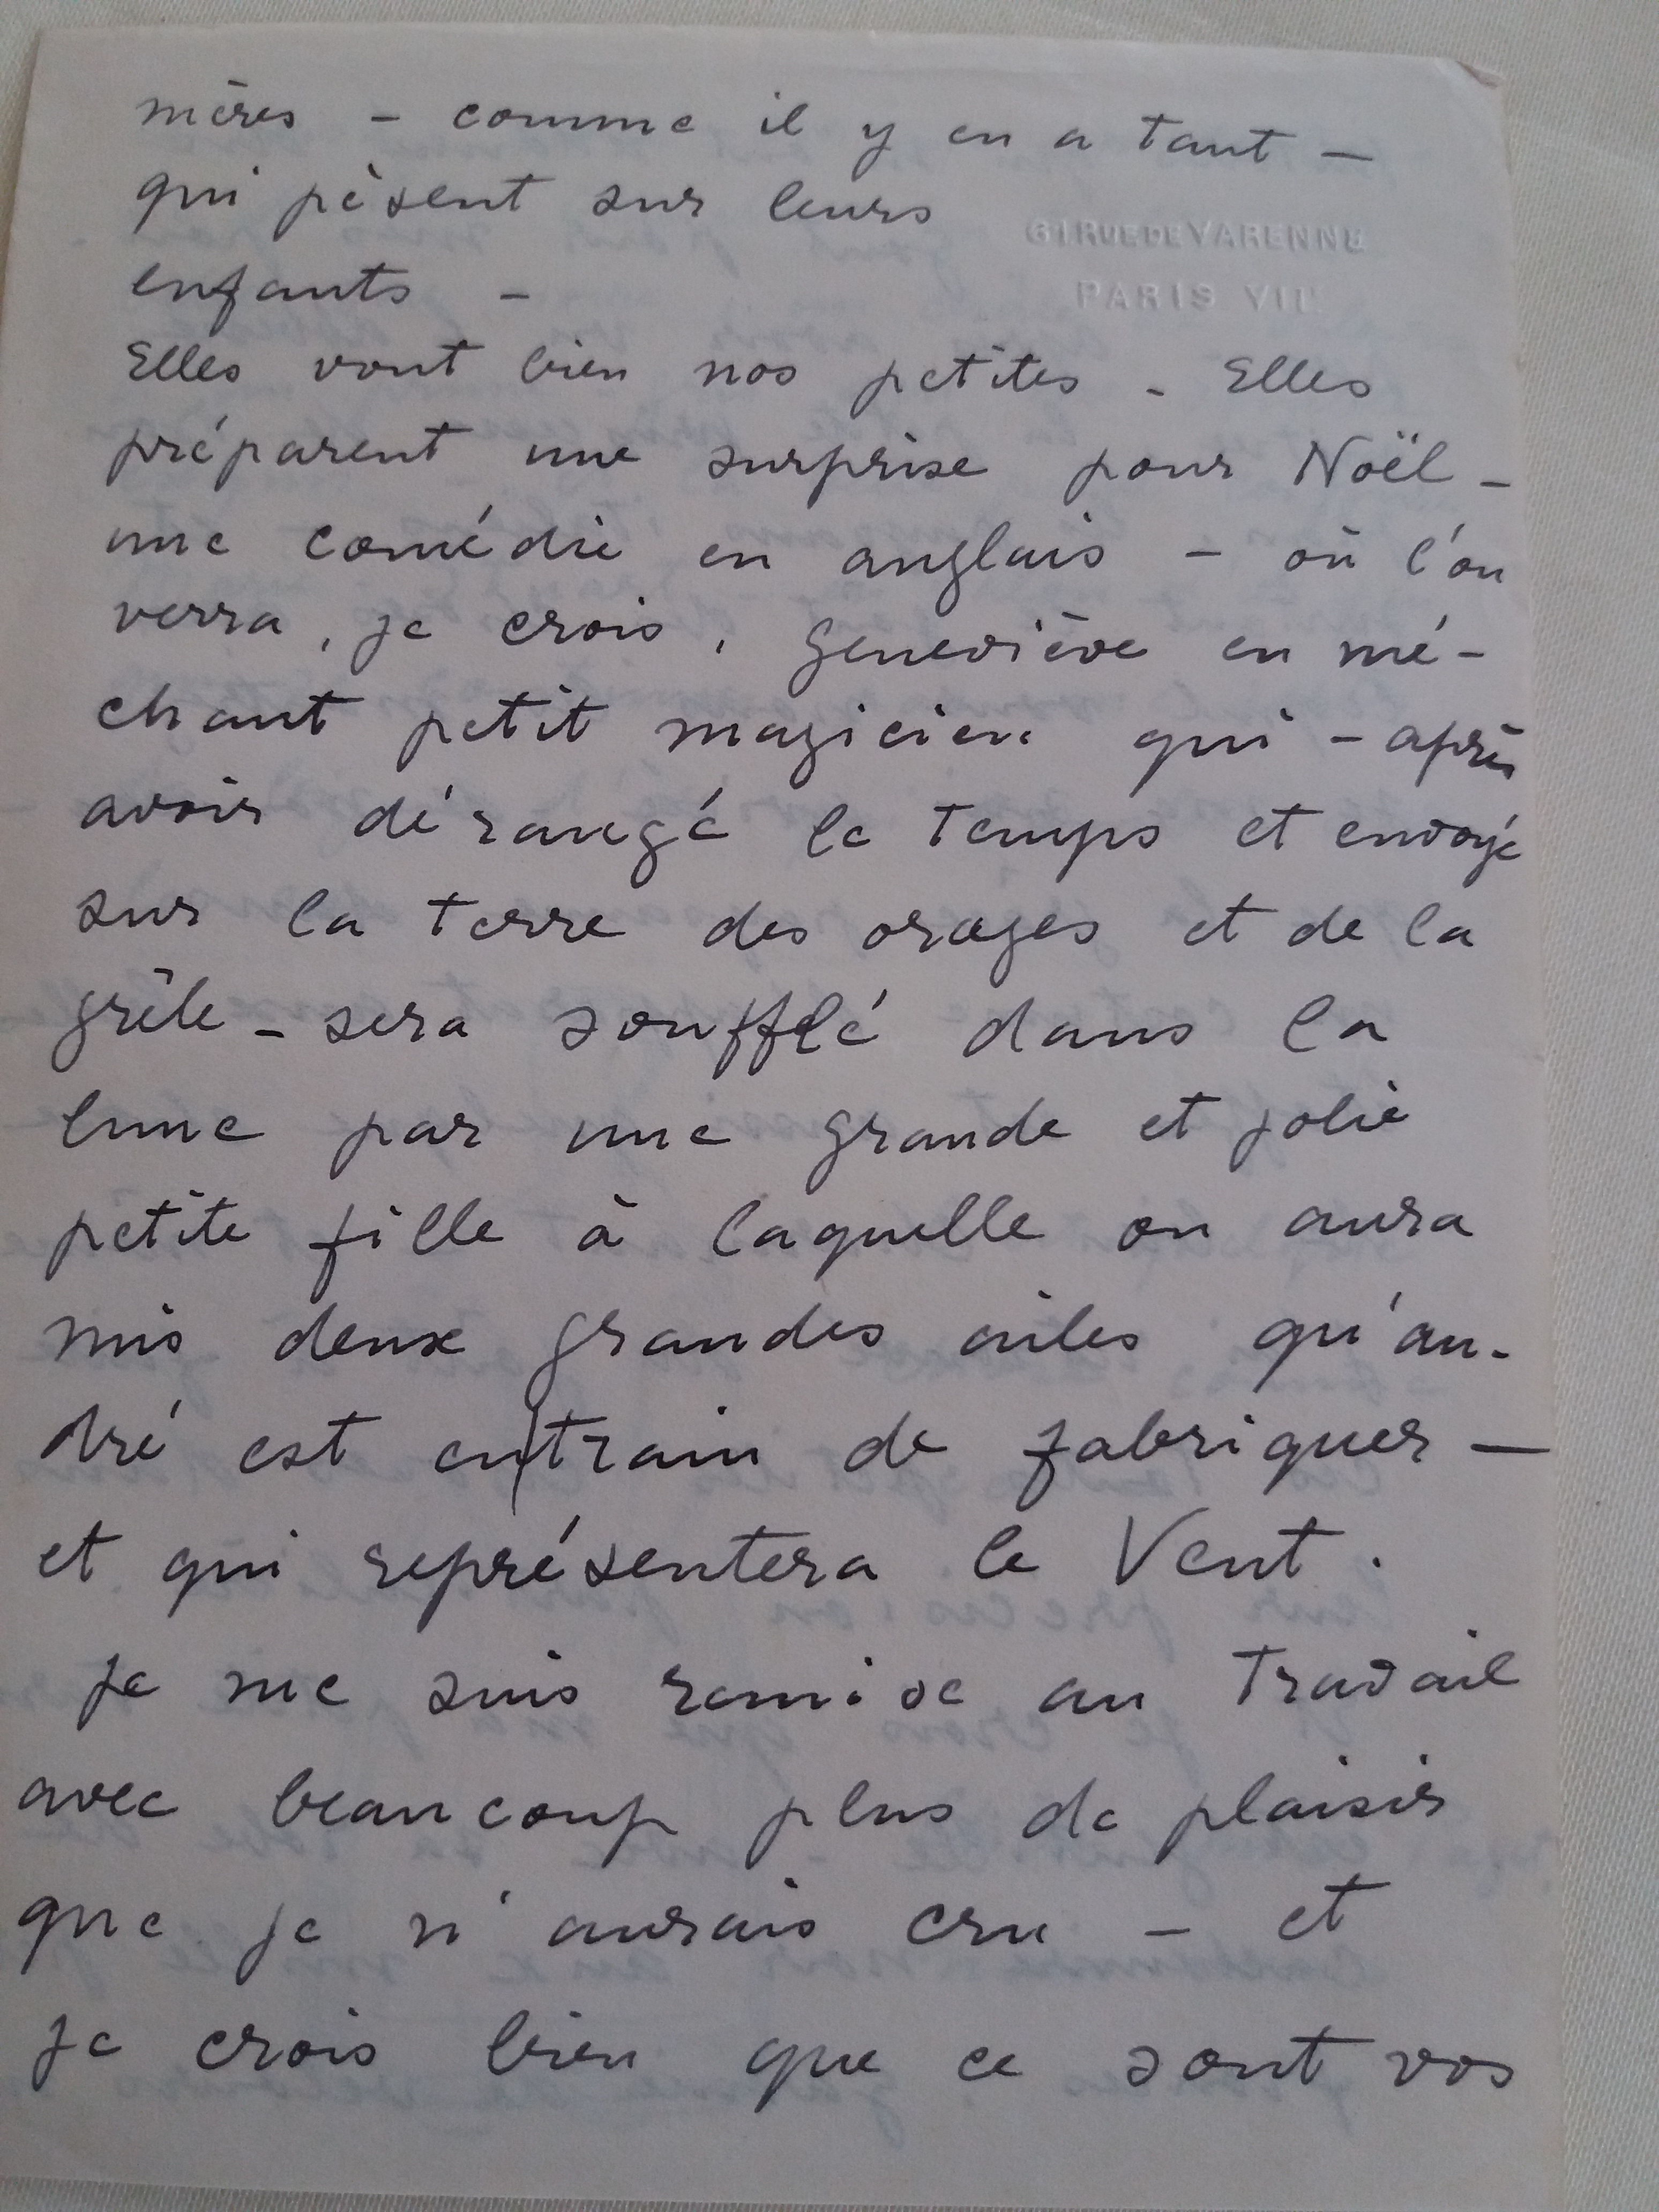 mères - comme il y en a tant -
qui pèsent sur leurs
61 RUE DE VARENNE
PARIS VII
enfants -
Elles vont bien nos petites - Elles
préparent une surprise pour Noël -
une comédie en anglais - où l'on
verra, je crois, Geneviève en mé-
chant petit magicien qui - après
avoir dérangé le temps et envoyé
sur la terre des orages et de la
grêle - sera soufflé dans la
lune par une grande et jolie
petite fille à laquelle on aura
mis deux grandes ailes qu'an-
dré est en train de fabriquer -
et qui représentera le Vent.
Je me suis remise au travail
avec beaucoup plus de plaisir
que je n'aurais cru - et
je crois bien que ce sont vos